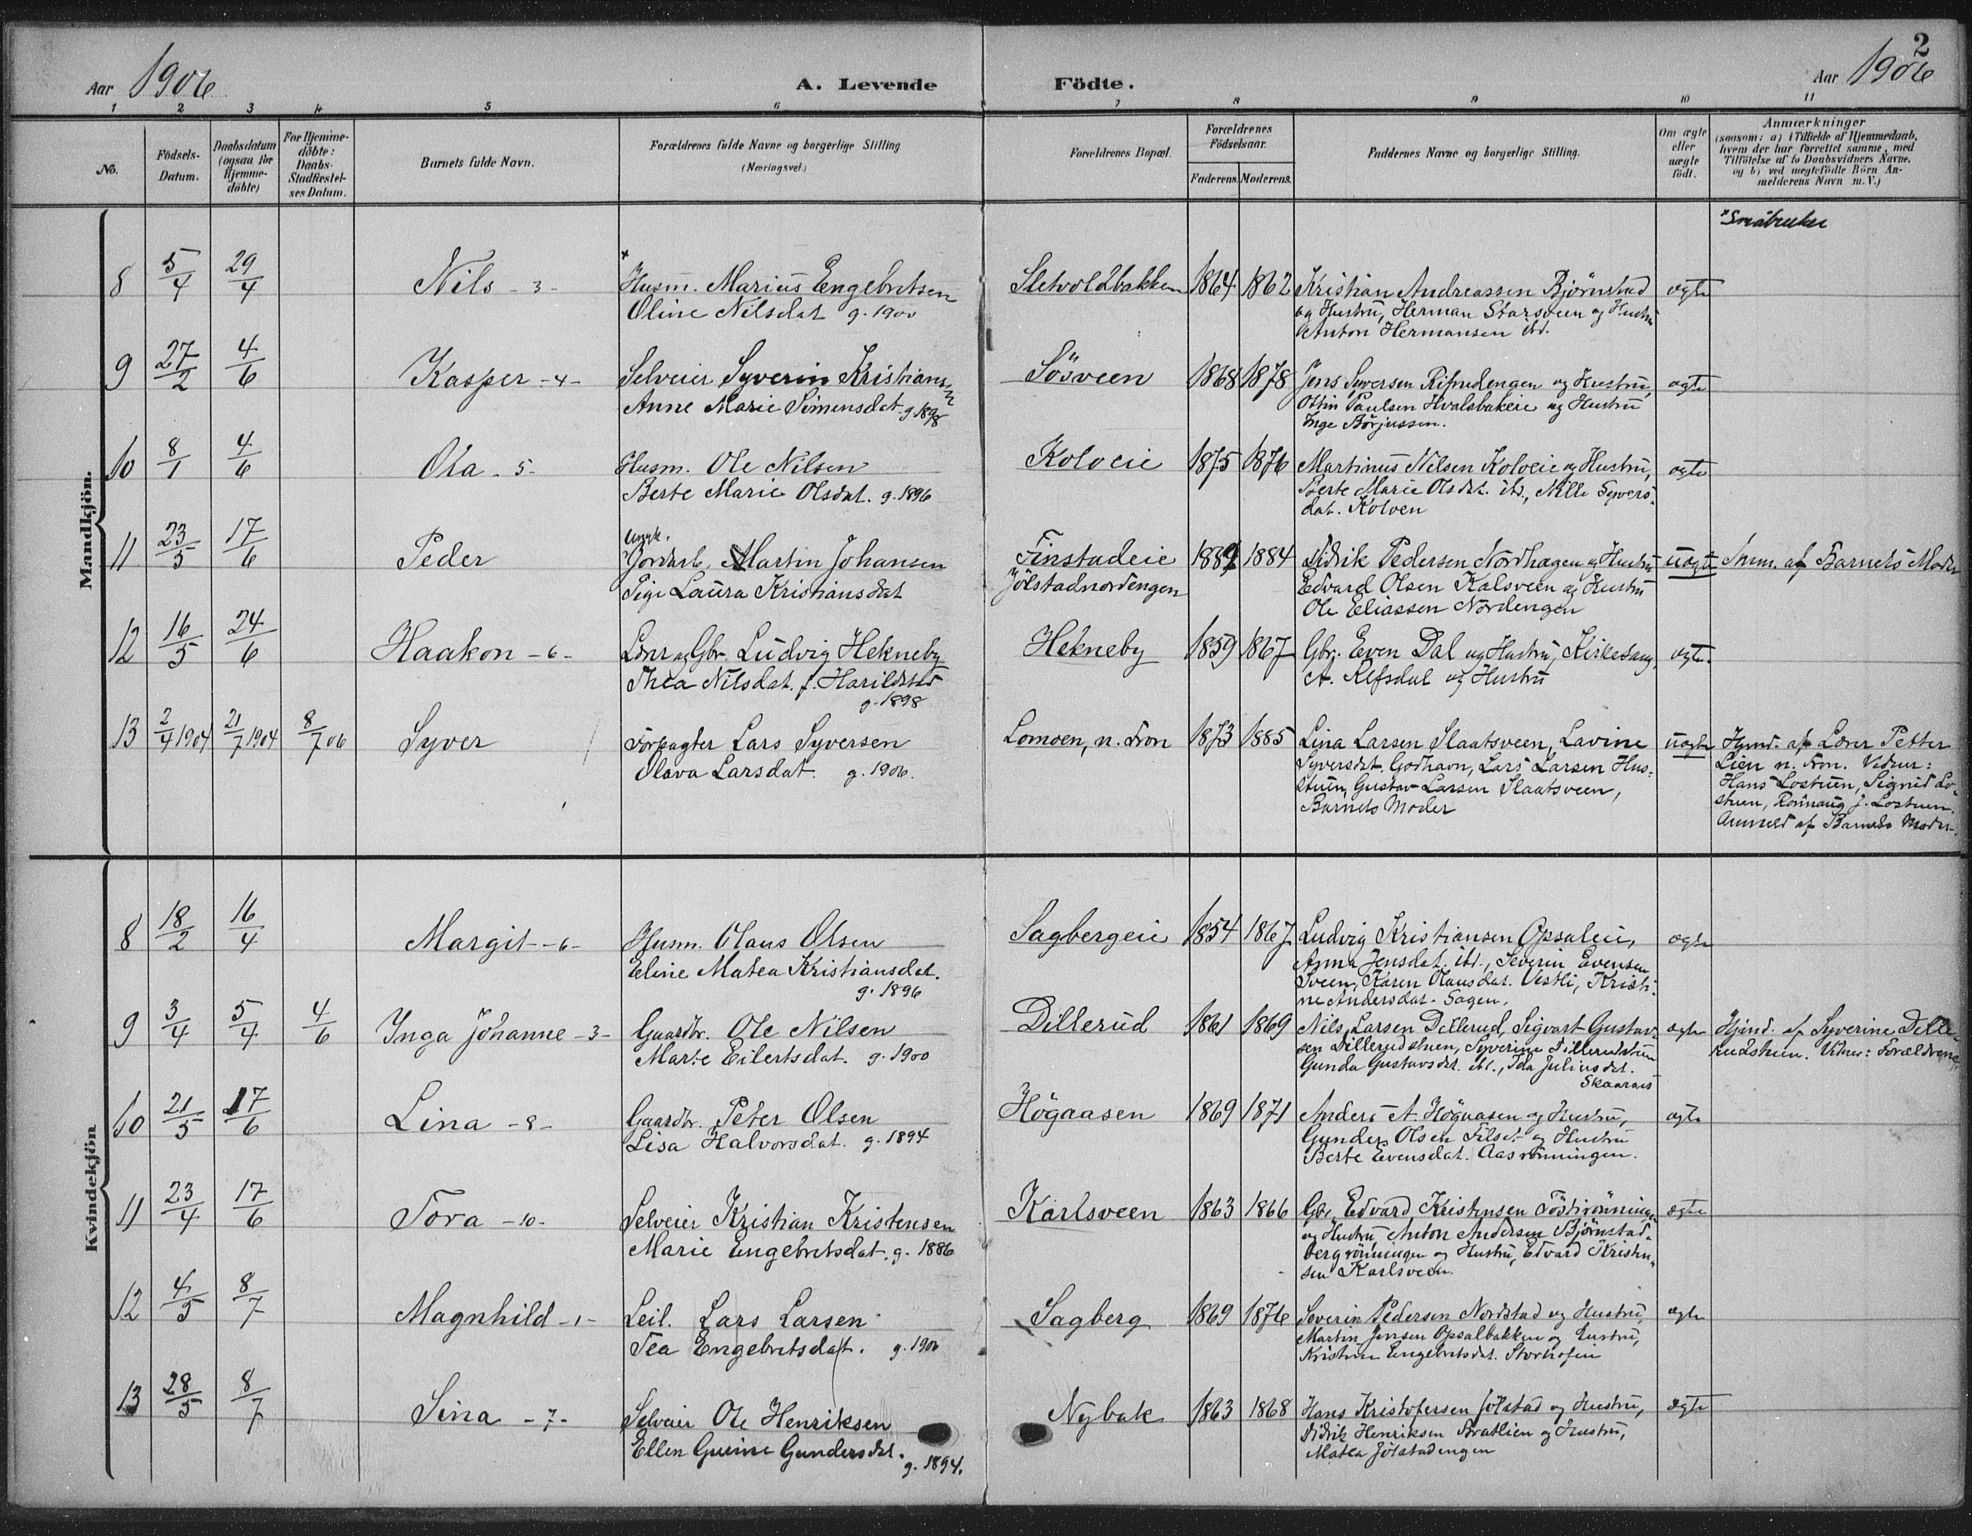 2
Aar 1906 A. Levende Födte. Aar 1906
1 2 3 4 5 6 7 8 9 10 11
No. Födsels-Datum. Daabsdatum (ogsaa for Hjemmedöbte) For Hjemmedøbte: Daabs-Stadfæstelses Datum. Barnets fulde Navn. Forældrenes fulde Navne og borgerlige Stilling (Næringsvei.) Forældrenes Bopæl. Forældrenes Födselsaar. Faderens. Moderens. Faddernes Navne og borgerlige Stilling. Om ægte eller uægte födt. Anmærkninger (saasom: a) i Tilfælde af Hjemmedaab, hvem der har forrettet samme, med Tilföielse af to Daabsvidners Navne, og b) ved uægtefödte Börn Anmelderens Navn m. V.)
Mandkjön.
x Småbruker
8 5/4 29/4 Nils - 3 - x Husm. Marius Engebretsen Sletvoldbakken 1864 1862 Kristian Andreassen Bjørnstad ægte
Oline Nilsdat g. 1900 og Hustru, Herman Storsveen og Hustru
Anton Hermansen ibd.
9 27/2 4/6 Kasper - 4 - Selveier Syverin Kristiansen Sösveen 1868 1878 Jens Syversen og Hustru, ægte
Anne Marie Simensdat. g. 1898 Ottin Paulsen Hvalsbakeie og Hustru
Inge Börjussen.
10 8/1 4/6 Ola - 5 - Husm. Ole Nilsen Kolveie 1875 1876 Martinus Nilsen Kolveie og Hustru, ægte
Berte Marie Olsdat. g. 1896 Berte Marie Olsdat. ibd., Nille Syversdat. Kolven
11 23/5 17/6 Peder Ungk. Jordarb. Martin Johansen Finstadeie 1884 Didrik Pedersen Nordhagen og Hustru uægte Anm. af Barnets Moder
Pige Laura Kristiansdat Jölstadnordengen Edvard Olsen Kalsveen og Hustru
Ole Eliassen Nordengen
12 16/5 24/6 Haakon - 6 - Lærer og Gbr. Ludvig Hekneby Hekneby 1859 1867 Gbr. Even Dal og Hustru, Kirkesang. ægte.
Thea Nilsdat. f. Harildstad A. Alfsdal og Hustru
g. 1898
13 2/4 1904 21/7 1904 8/7 06 Syver Forpagter Lars Syversen Lomoen, n. Fron 1873 1885 Lina Larsen Slaatsveen, Lavine uægte Hjmd. af Lærer Petter
Olava Larsdat. g. 1906. Syversdat. Godhavn, Lars Larsen Hus- Lien n. Fron. Vidner:
stuen, Gustav Larsen Slaatsveen, Hans Lostuen, Sigrid Lo-
Barnets Moder stuen, Rönnaug J. Lostuen.
Anmeld af Barnets Moder.
Kvindekjön
8 18/2 16/4 Margit - 6 - Husm. Olaus Olsen Sagbergeie 1854 1867 Ludvig Kristiansen Opsaleie, ægte
Eline Matea Kristiansdat. Anna Jensdat. ibd., Severin Evensen
g. 1896 Sveen, Karen Olausdat. Vestli, Kristi-
ne Andersdat. Sagen.
9 3/4 5/4 4/6 Inga Johanne - 3 - Gaardbr. Ole Nilsen Dillerud 1861 1869 Nils Larsen Dillerud, Sigvart Gustav- ægte Hjmd. af Syverine Dille-
Marte Eilertsdat. g. 1900 sen Dillerudstuen, Syverine Dillerudstuen rudstuen. Vidner: Forældrene.
Gunda Gustavsdat. ibd., Ida Juliusdat.
Skaaraas
10 21/5 17/6 Lina - 8 - Gaardbr. Peter Olsen Högaasen 1869 1871 Anders A. Högaasen og Hustru, ægte
Lisa Halvorsdat. g. 1894 Gunder Olsen Filset og Hustru
Berte Evensdat. Aasrönningen.
11 23/4 17/6 Tora - 10 - Selveier Kristian Kristensen Karlsveen 1863 1866 Gbr. Edvard Kristensen ægte
Marie Engebretsdat. g. 1886 og Hustru Anton Andersen Bjørnstad-
bergrönningen og Hustru, Edvard Kristen-
sen Karlsveen
12 4/5 8/7 Magnhild - 1 - Leil. Lars Larsen Sagberg 1869 1876 Severin Pedersen Nordstad og Hustru, ægte
Tea Engebretsdatt. g. 1900 Martin Jensen Opsalbakken og Hustru,
Kristine Engebretsdat.
13 28/5 8/7 Sina - 7 - Selveier Ole Henriksen Nybak 1863 1868 Hans Kristofersen Jölstad og Hustru, ægte
Ellen Gurine Gundersdat. Didrik Henriksen Bratlien og Hustru,
g. 1894. Matea Jölstadengen